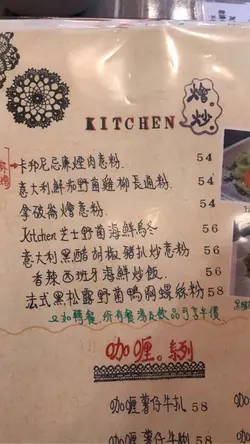 燴.炒
KITCHEN
卡邦尼忌廉煙肉意粉 54
意大利鮮茄野菌雞柳長通粉 54
拿破崙燴意粉 54
Kitchen芝士野菌海鮮烏冬 56
意大利黑醋胡椒豬扒炒意粉 56
香辣西班牙海鮮炒飯 56
法式黑松露野菌鴨胸螺絲粉 58
另加轉餐 所有餐湯及飲品可享半價
咖喱。系列
咖喱薯仔牛扒 58
咖喱薯仔牛腩 58